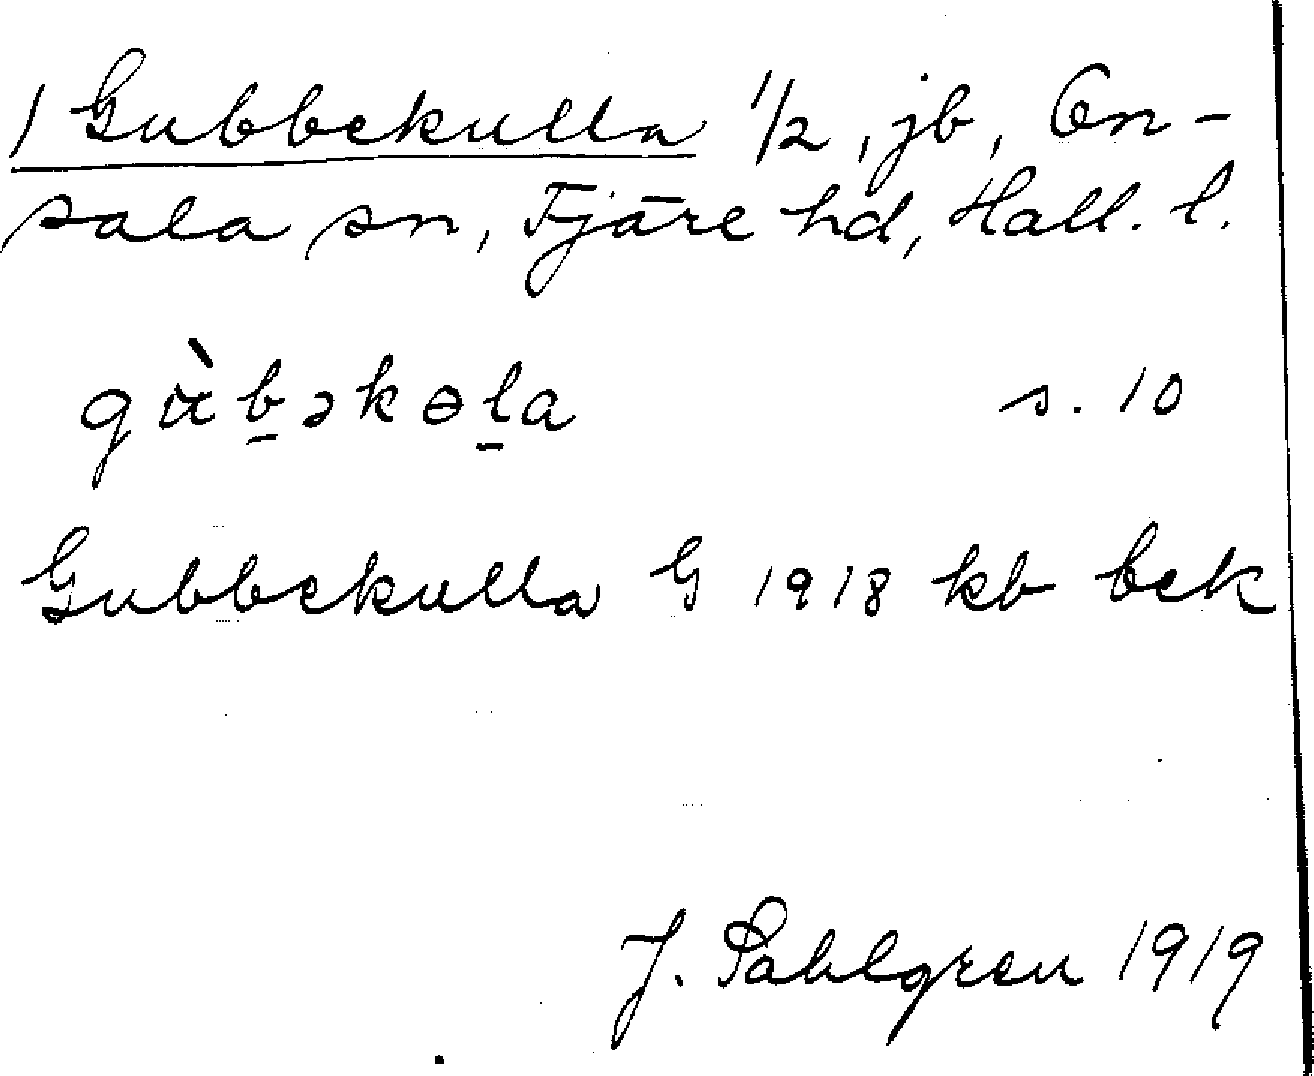 1 Gubbekulla 1/2, jb, On-
sala sn, Fjäre hd, Hall. l.
gɑ̀b̠əkɵl̠a s. 10
Gubbekulla G 1918 kb bek
J. Sahlgren 1919